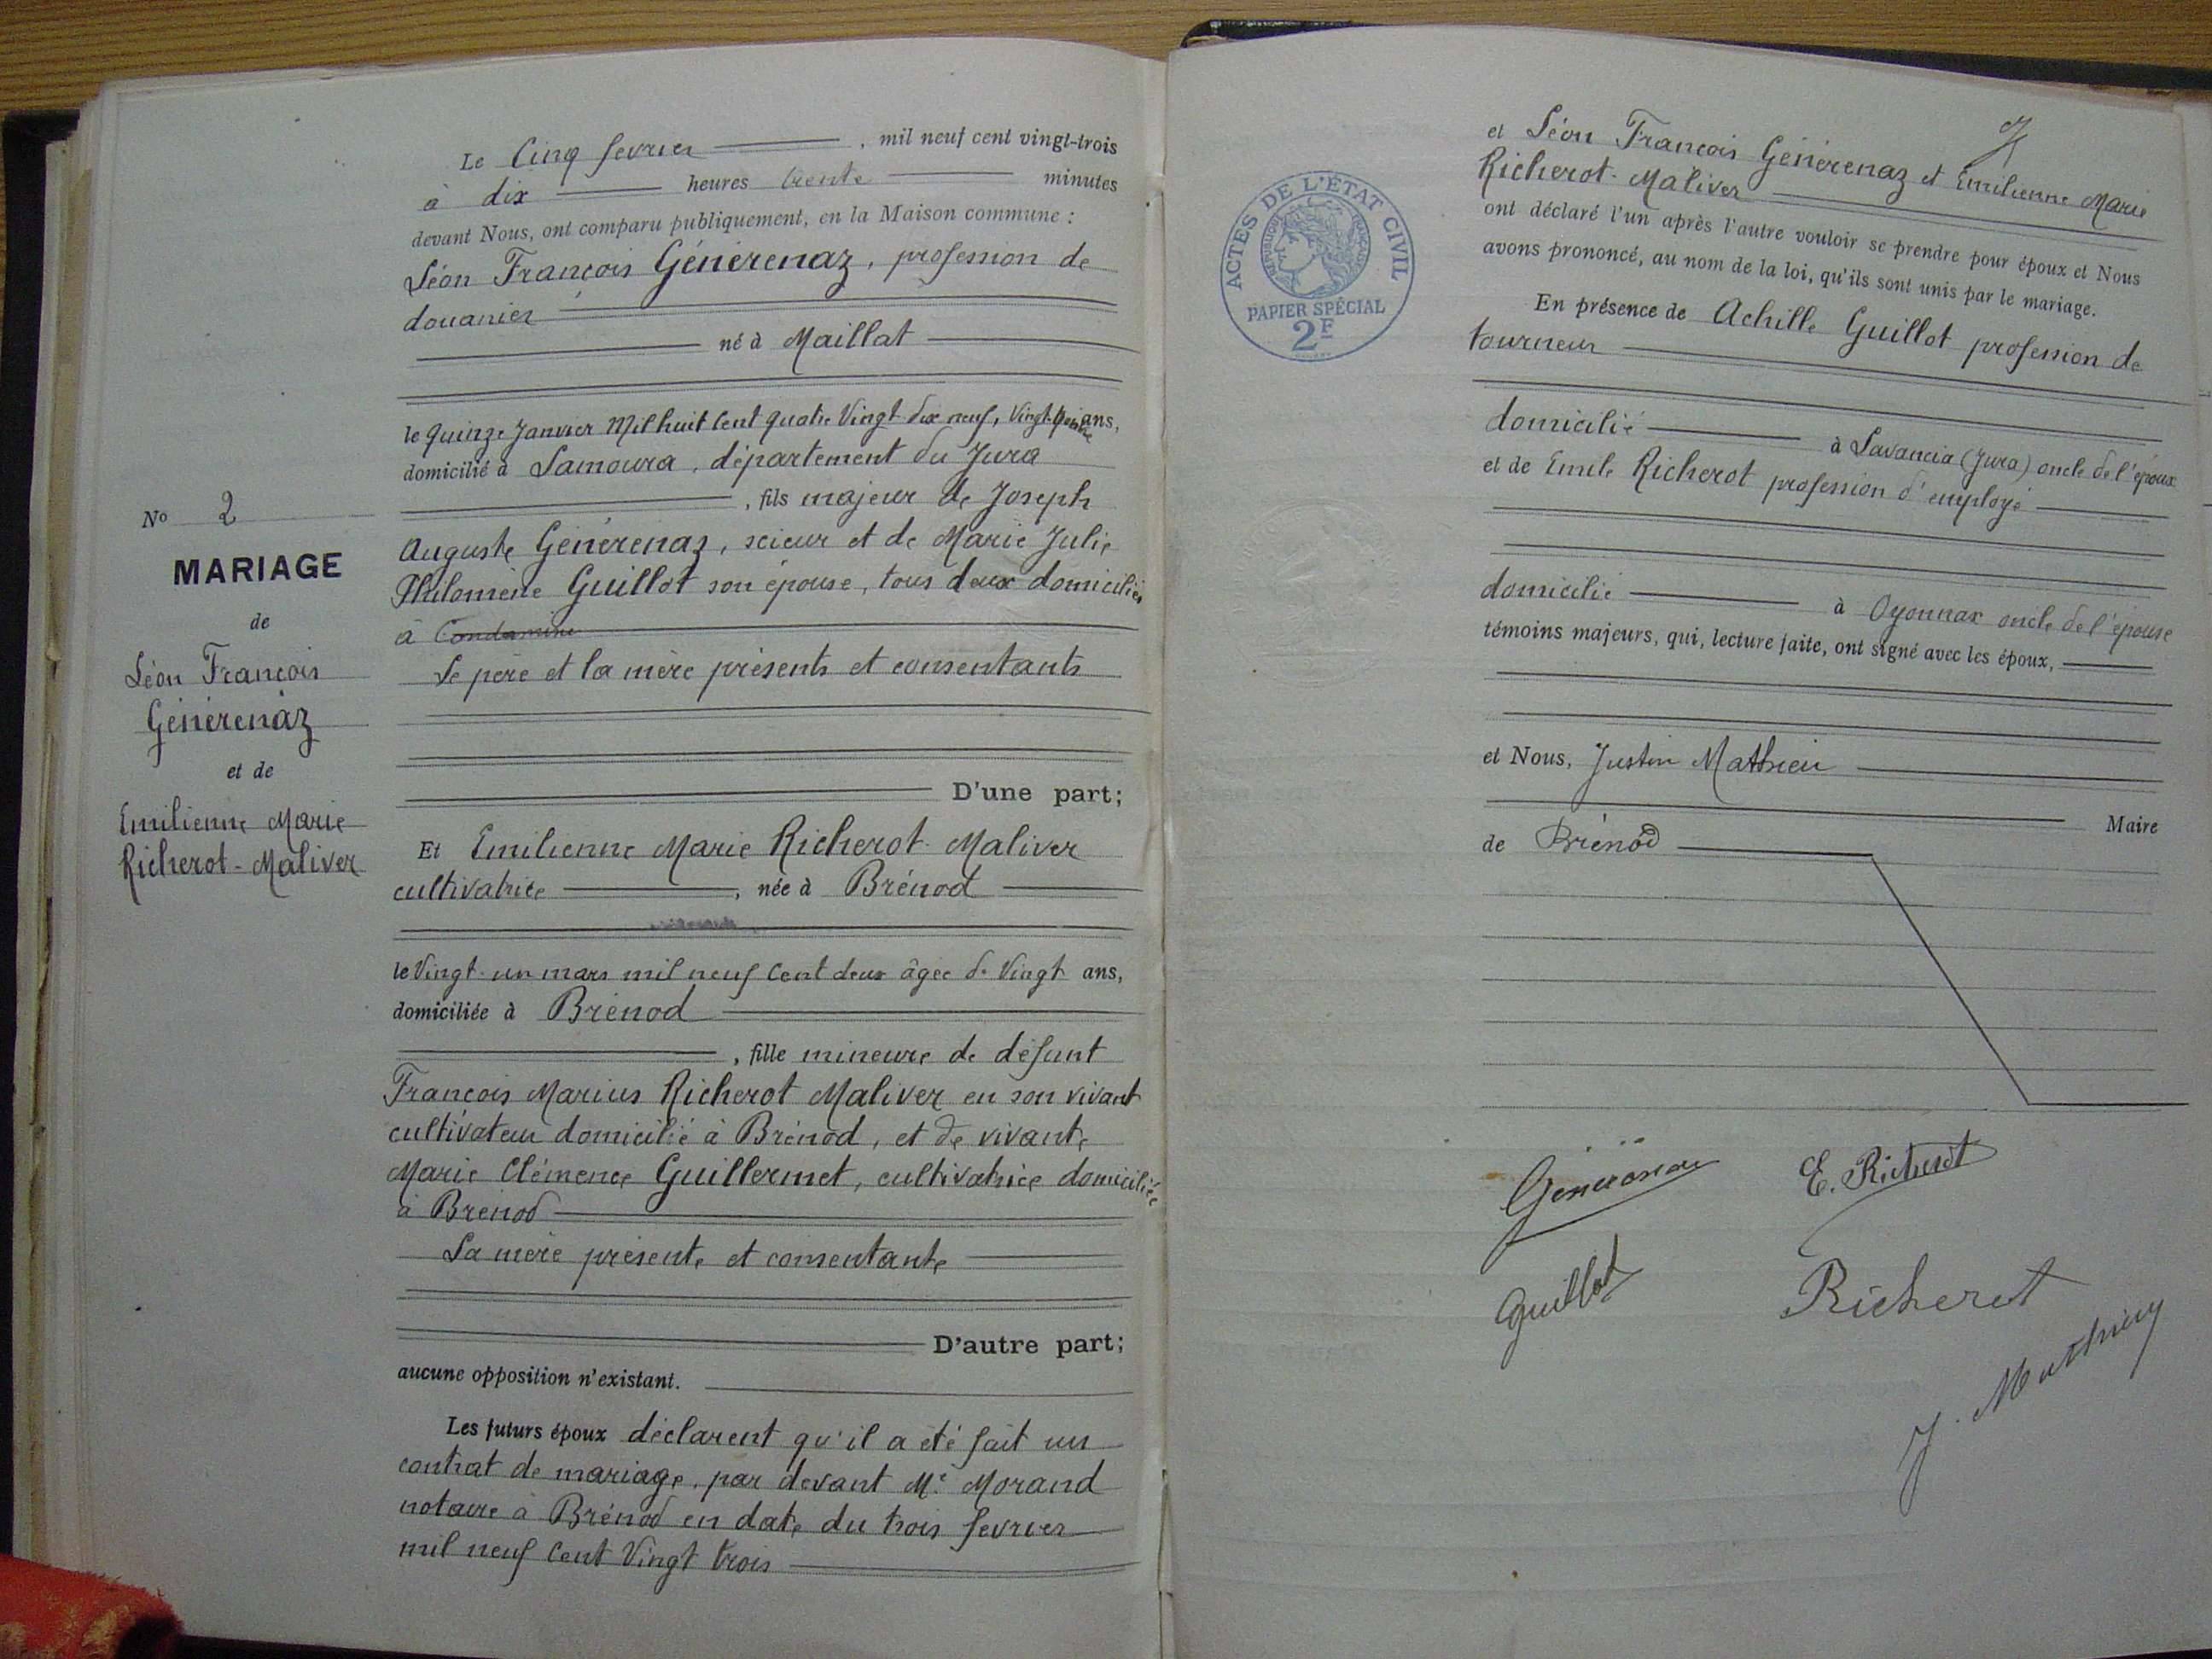 Le Cinq fevrier, mil neuf cent vingt-trois
à dix heures trente minutes
devant Nous, ont comparu publiquement, en la Maison commune :
Léon François Générenaz, profession de
douanier
né à Maillat
le quinze Janvier Mil huit Cent quatre Vingt dix neuf, Vingt-quatre ans,
domicilié à Lamoura, département du Jura
, fils majeur de Joseph
Auguste Générenaz, scieur et de Marie Julie
Philomène Guillot son épouse, tous deux domiciliés
à Condamine
Le père et la mère présents et consentants
D'une part;
Et Emilienne Marie Richerot-Maliver
cultivatrice, née à Brénod
le Vingt-un mars mil neuf Cent deux âgée de Vingt ans,
domiciliée à Brénod
, fille mineure de défunt
François Marius Richerot Maliver en son vivant
cultivateur domicilié à Brénod, et de vivante
Marie Clémence Guillermet, cultivatrice domiciliée
à Brénod
La mère présente et consentante
D'autre part;
aucune opposition n'existant.
Les futurs époux déclarent qu'il a été fait un
contrat de mariage, par devant Me Morand
notaire à Brénod en date du trois fevrier
mil neuf Cent Vingt trois
No 2
MARIAGE
de
Léon François
Générenaz
et de
Emilienne Marie
Richerot-Maliver
ACTES DE L'ÉTAT CIVIL
RÉPUBLIQUE FRANÇAISE
PAPIER SPÉCIAL
2F
et Léon François Générenaz et Emilienne Marie
Richerot-Maliver
ont déclaré l'un après l'autre vouloir se prendre pour époux et Nous
avons prononcé, au nom de la loi, qu'ils sont unis par le mariage.
En présence de Achille Guillot profession de
tourneur
domicilié à Lavancia (Jura) oncle de l'époux
et de Emile Richerot profession d'employé
domicilié à Oyonnax oncle de l'épouse
témoins majeurs, qui, lecture faite, ont signé avec les époux,
et Nous, Justin Mathieu
Maire
de Brénod
E. Richerot
Guillot
Richerot
J. Mathieu